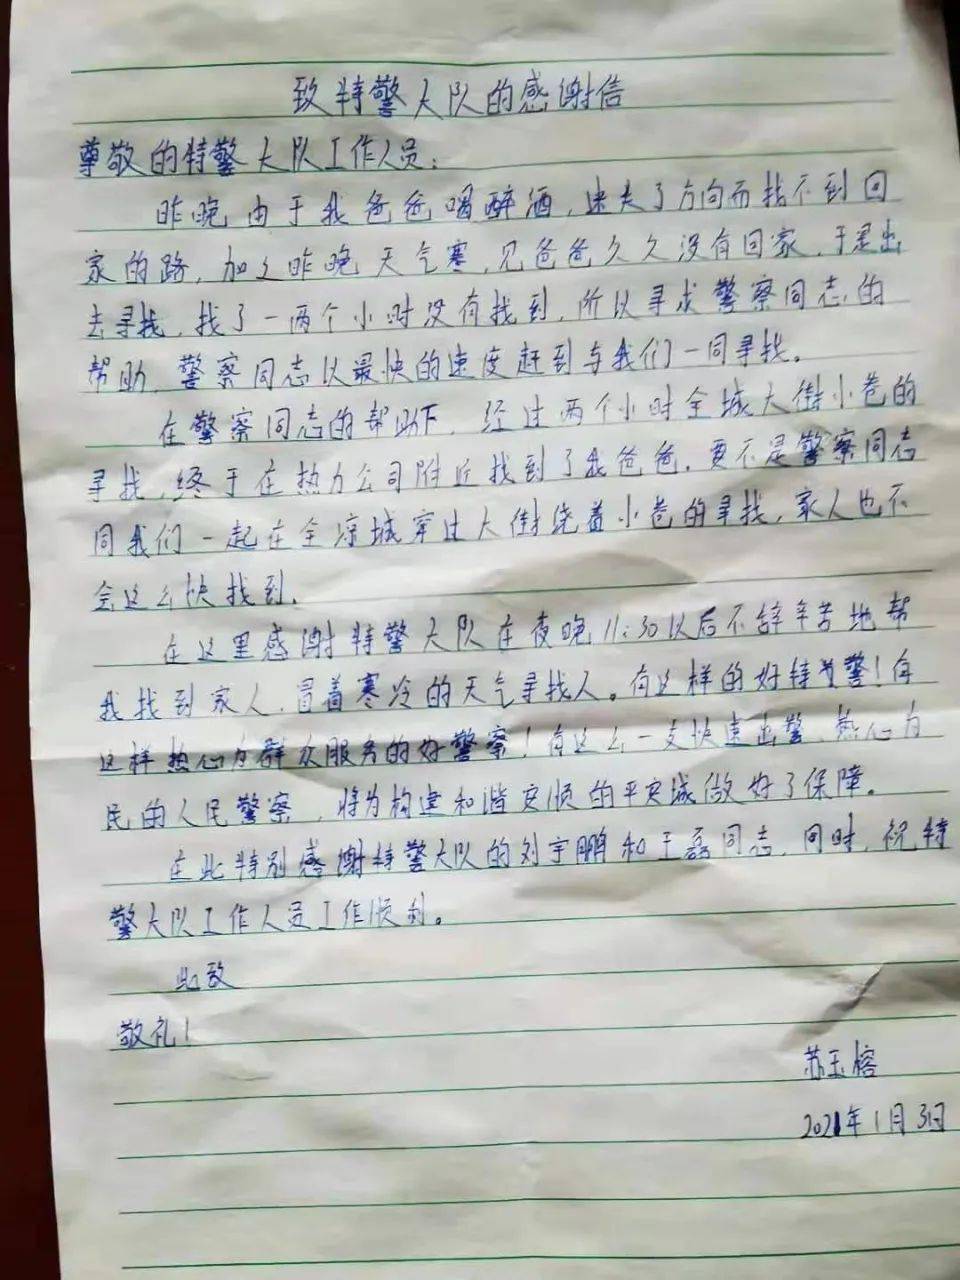 致特警大队的感谢信
尊敬的特警大队工作人员：
昨晚由于我爸爸喝醉酒，迷失了方向而找不到回
家的路，加之昨晚天气寒，见爸爸久久没有回家，于是出
去寻找，找了一两个小时没有找到，所以寻求警察同志的
帮助，警察同志以最快的速度赶到与我们一同寻找。
在警察同志的帮助下，经过两个小时全城大街小巷的
寻找，终于在热力公司附近找到了我爸爸，要不是警察同志
同我们一起在全凉城穿过大街绕着小巷的寻找，家人也不
会这么快找到，
在这里感谢特警大队在夜晚11:30以后不辞辛苦地帮
我找到家人，冒着寒冷的天气寻找人。有这样的好特警！有
这样热心为群众服务的好警察！有这么一支快速出警、热心为
民的人民警察，将为构建和谐安顺的平安城做好了保障。
在此特别感谢特警大队的刘宇鹏和王磊同志，同时，祝特
警大队工作人员工作顺利。
此致
敬礼！
苏玉榕
2021年1月3日